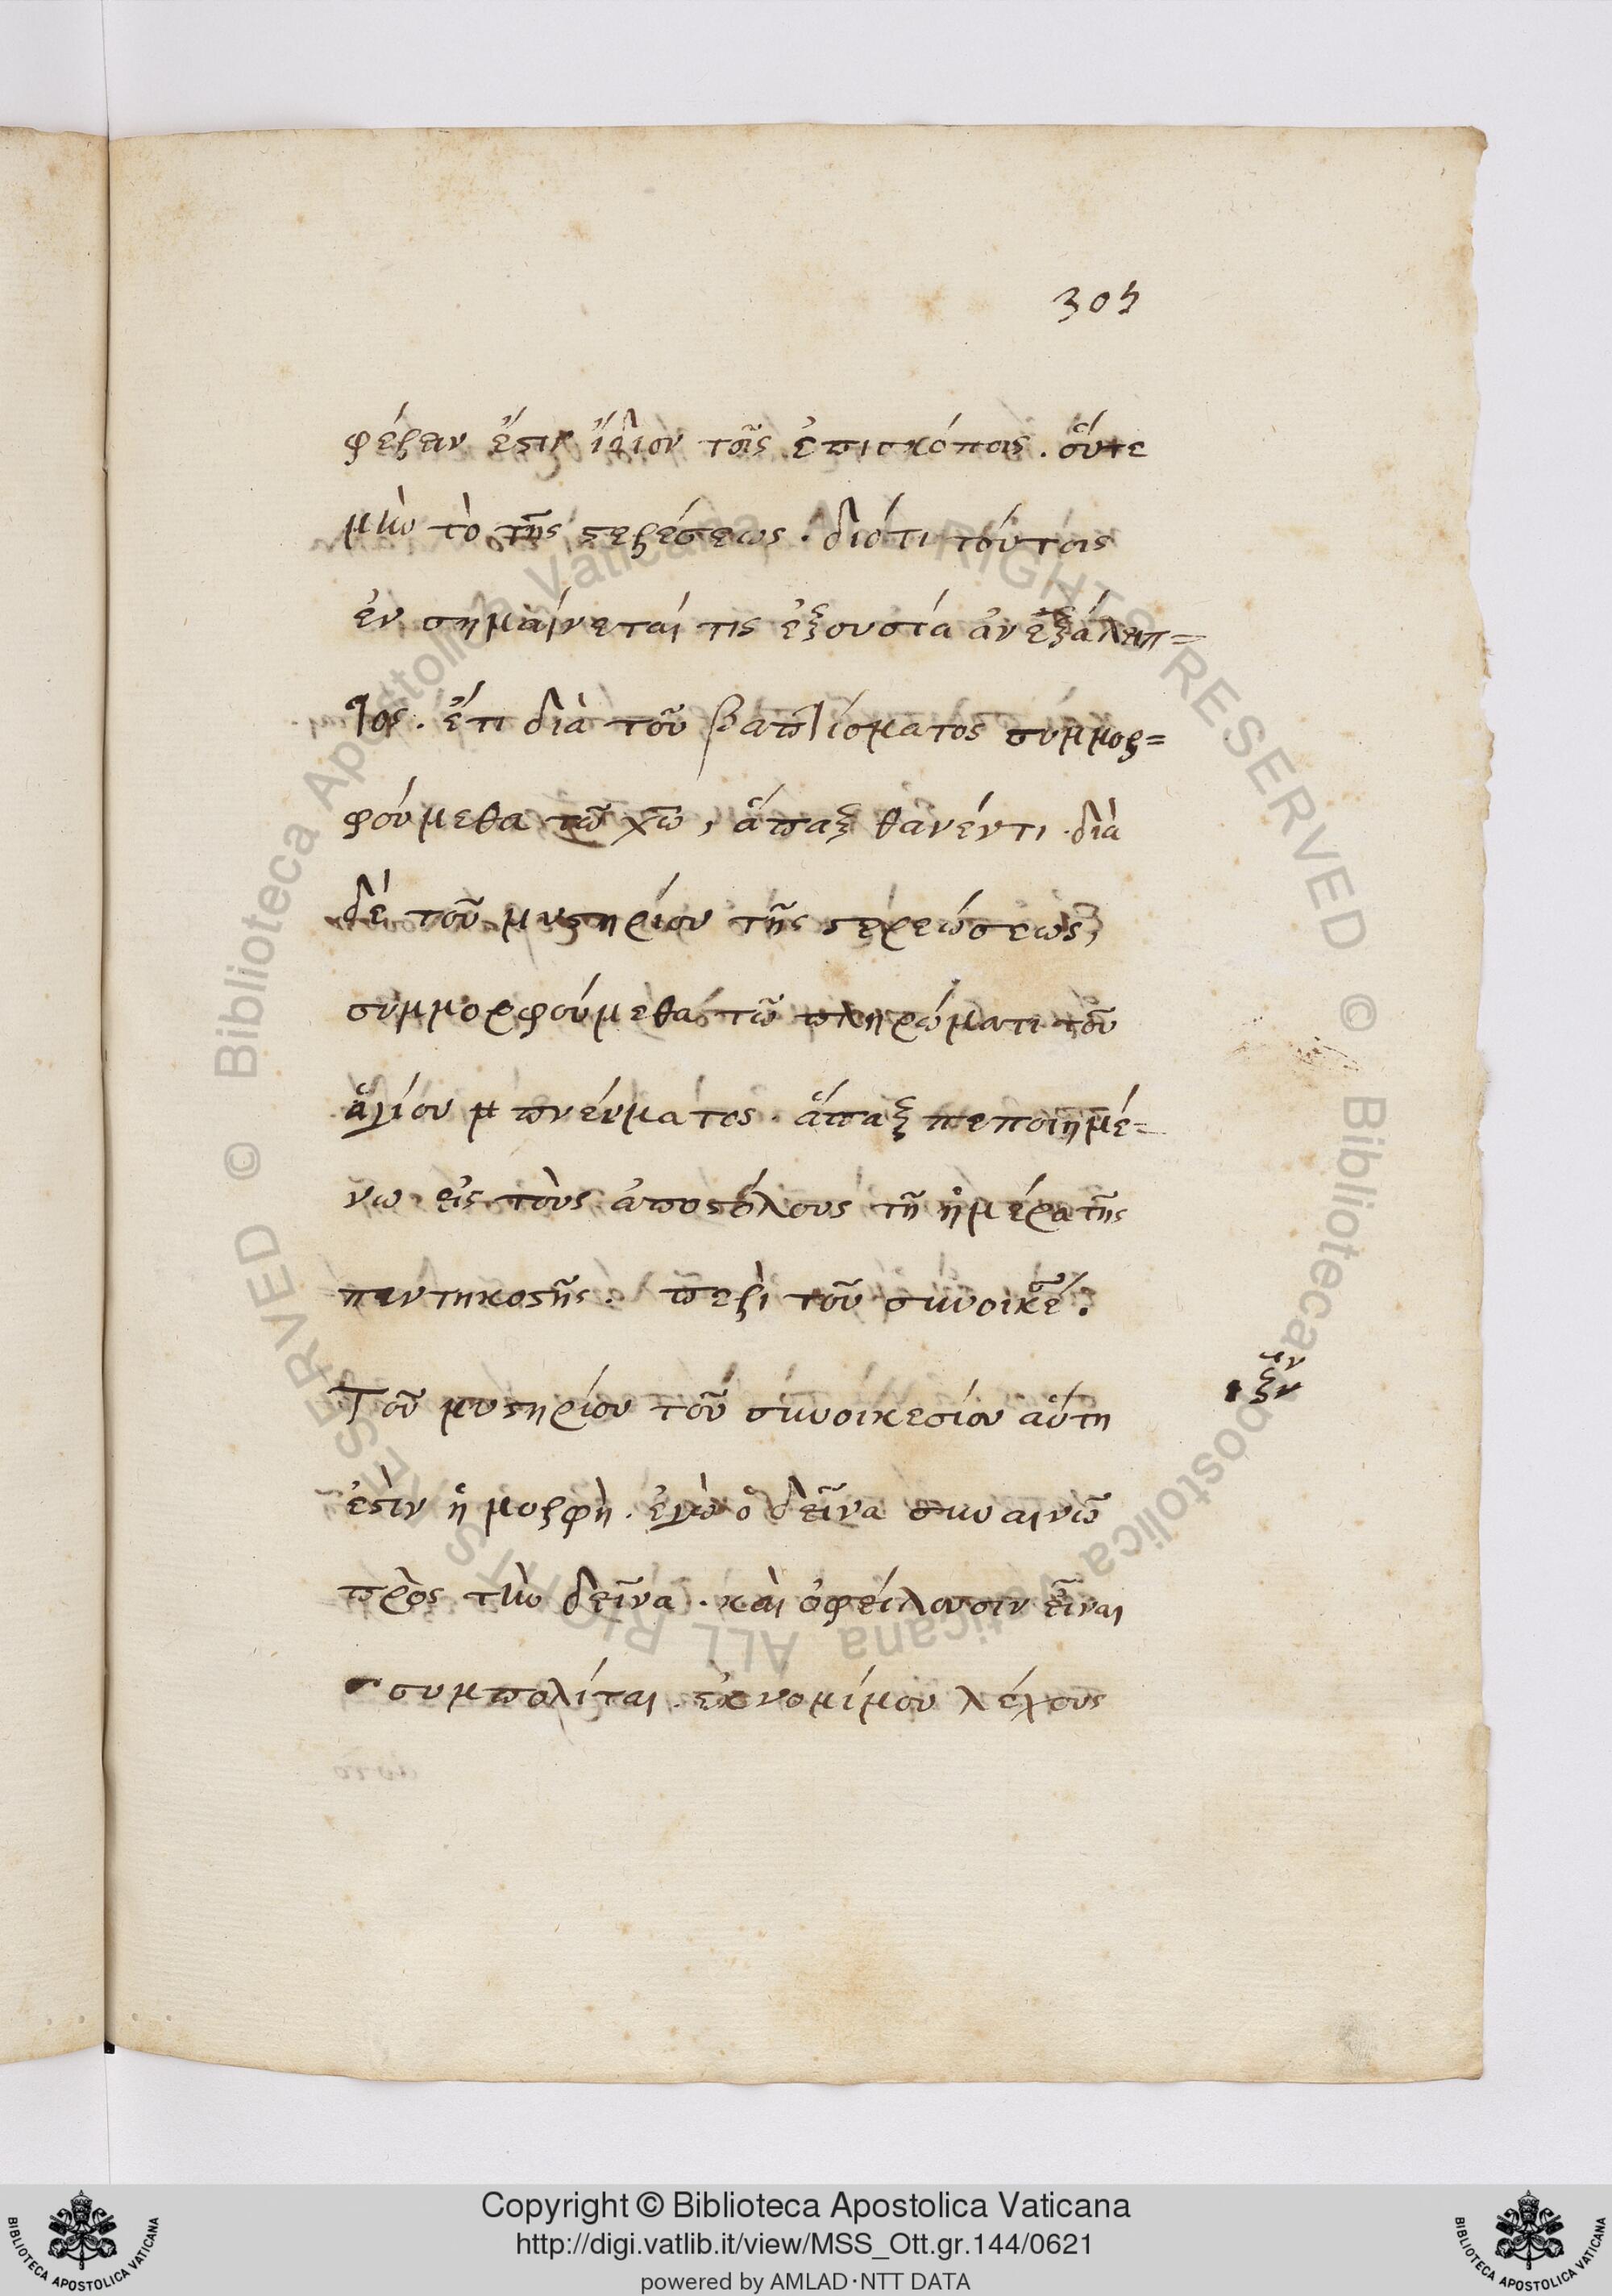 305
φέρειν ἔστιν ἴδιον τοῖς ἐπισκόποις. οὔτε
μὴν τὸ τῆς στερεώσεως. διότι τούτοις
ἐν σημαίνεταί τις ἐξουσία ἀνεξάλειπ=
τος. ἔτι διὰ τοῦ βαπτίσματος συμμορ=
φούμεθα τῷ χῷ, ἅπαξ θανέντι. διὰ
δὲ τοῦ μυστηρίου τῆς στερεώσεως,
συμμορφούμεθα τῷ πληρώματι τοῦ
ἁγίου πνεύματος. ἅπαξ πεποιημέ=
νῳ εἰς τοὺς ἀποστόλους τῇ ἡμέρᾳ τῆς
πεντηκοστῆς. περὶ τοῦ συνοικε.
Τοῦ μυστηρίου τοῦ συνοικεσίου αὕτη
ἐστὶν ἡ μορφὴ. ἐγὼ ὁ δεῖνα συναινῶ
πρὸς τὴν δεῖνα. καὶ ὀφείλουσιν εἶναι
συμπολίται. ἐκ νομίμου λέχους
Copyright © Biblioteca Apostolica Vaticana
http://digi.vatlib.it/view/MSS_Ott.gr.144/0621
powered by AMLAD·NTT DATA
BIBLIOTECA APOSTOLICA VATICANA
BIBLIOTECA APOSTOLICA VATICANA
© Biblioteca Apostolica Vaticana ALL RIGHTS RESERVED
© Biblioteca Apostolica Vaticana ALL RIGHTS RESERVED